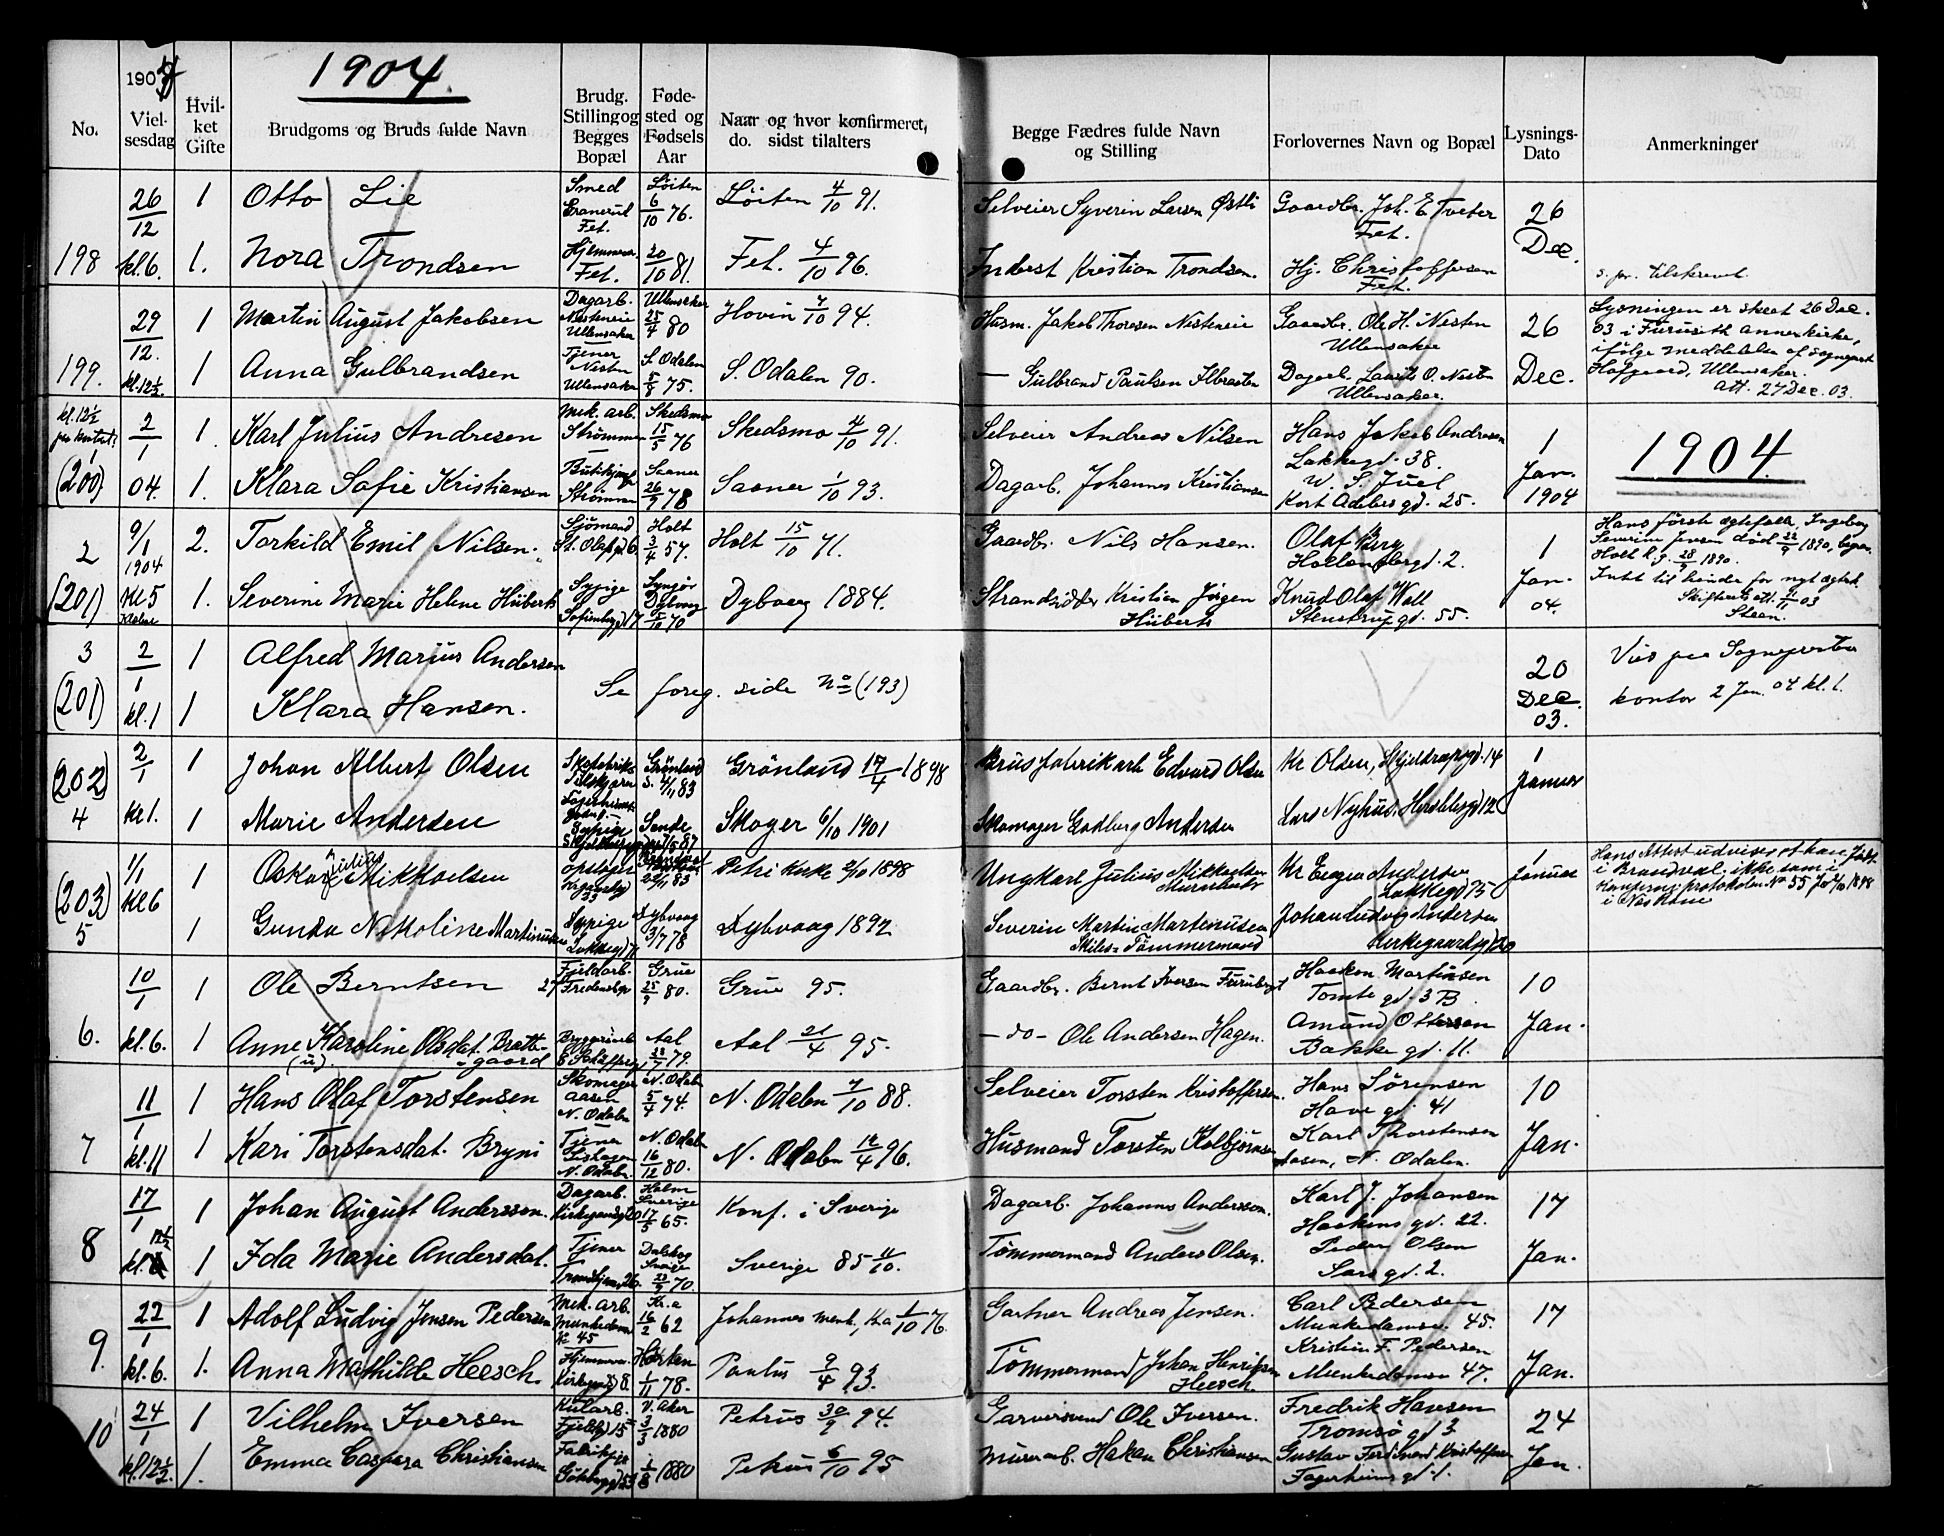 1904.
No.
1904
Viel-
sesdag
Hvil-
ket
Gifte
Brudgoms og Bruds fulde Navn
Brudg.
Stilling og
Begges
Bopæl
Føde-
sted og
Fødsels
Aar
Naar og hvor konfirmeret,
do. sidst tilalters
Begge Fædres fulde Navn
og Stilling
Forlovernes Navn og Bopæl
Lysnings-
Dato
Anmerkninger
26/12 1 Otto Lie Smed Fet. Løiten 6/10 76. Løiten 4/10 91. Selveier Syverin Larsen Østli Gaardbr. Joh. E. Tveter Fet. 26 Dec.
198 kl. 6. 1. Nora Trondsen Hjemmev. Fet. 20/10 81. Fet. 4/10 96. Inderst Kristian Trondsen. Hj. Christoffersen Fet. s. pr. tilskrevet
29/12. 1 Martin August Jakobsen Dagarb. Nesteneie Ullensaker Ullensaker 25/4 80 Hovin 7/10 94. Husm. Jakob Thoresen Nesteneie Gaardbr. Ole H. Nesten Ullensaker 26 Dec.
Lysningen er skeet 26 Dec.
03 i Furuseth annexkirke,
ifølge meddelelse af sognepr.
Hofgaard, Ullensaker.
att. 27 Dec. 03.
199. kl. 12½. 1 Anna Gulbrandsen Tjener Nesten Ullensaker S. Odalen 5/8 75. S. Odalen 90. — Gulbrand Paulsen Dagarb. Laurits O. Nesten Ullensaker.
kl. 12½ 2/1 1. Karl Julius Andresen Mek. arb. Strømmen Skedsmo 15/5 76 Skedsmo 4/10 91. Selveier Andreas Nilsen Hans Jakob Andresen Lakkegd. 38. 1 Jan. 1904
1904.
1 (200) 04. 1. Klara Sofie Kristiansen Strømmen Saaner 26/9 78 Saaner 1/10 93. Dagarb. Johannes Kristiansen W. S. Juel Kort Adelers gd. 25.
2 9/1 1904 2. Torkild Emil Nilsen. Sjømand St. Olafsgd 6 Holt 3/4 57. Holt 15/10 71. Gaardbr. Nils Hansen. Olaf Berg gd. 2. 1 Jan. 04.
Hans første ægtefælle, Ingeborg
Severine Jensen død 22/9 1890, begr.
Holt K. g. 28/9 1890.
Intet til hinder for nyt ægtesk.
Skifterets att. 03
Steen.
(201) Kl 5 1. Severine Marie Helene Hüberts Sypige Sofienbgd 17 Lyngør Dybvaag 5/10 70 Dybvaag 1884. Strandsidder Kristian Jørgen Hüberts Knud Olaf Woll Stenstrupgd. 55.
3 2/1 1 Alfred Marius Andersen 20 Dec. 03. Viet paa Sognepresten
Se foreg. side No (193)
(201) kl. 1 1 Klara Hansen. kontor 2 Jan. 04 kl. 1.
(202) 2/1 1 Johan Albert Olsen Grønland 83 Grønland 17/4 1898 Brusfabrikarb Edvard Olsen Kr Olsen, Skjeldrupgd. 14 1 Januar
4 Kl 1. 1 Marie Andersen Sypige Sande 87 Skoger 6/10 1901 Skomager Godberg Andersen Lars Nyhus, Herslebgd 12
1/1 1 Oskar Julius Mikkelsen Opslager 33 Brandval 22/11 83 Petri Kirke 2/10 1898 Ungkarl Julius Mikkelsen Kr Eugen Andersen Lakkegd 75 1 Januar
Hans Attest udviser at han født
i Brandval,
(203) Kl 6 5 1 Gunda Nikoline Martinusen Sypige Lakkegd 71 Dybvaag 3/7 78 Dybvaag 1892 Severin Martin Martinusen Tømmermand Johan Ludvig Andersen Kirkegaardsgd 20
10/1 1 Ole Berntsen Fjeldarb. 27 Fredensbgv Grue 25/9 80. Grue 95. Gaardbr. Bernt Iversen Furuberget Haakon Martinsen Tomte gd. 3 B. 10 Jan.
6. kl. 6. 1 Anne Karoline Olsdat. Bratte- (u). gaard Aal 79 Aal 21/4 95. —do— Ole Andersen Hagen. Amund Ottersen Bakke gd. 11.
11/1 1 Hans Olaf Torstensen Skomager Aasen N. Odalen N. Odalen 5/4 74. N. Odalen 7/10 88. Selveier Torsten Kristoffersen. Hans Sørensen Have gd. 41 10 Jan.
7 kl. 11 1 Kari Torstensdat. Bryni Tjener N. Odalen N. Odalen 16/12 80. N. Odalen 12/4 96. Husmand Torsten Kolbjørnsen Karl Thorstensen Aasen, N. Odalen.
17/1 1 Johan August Andersson. Dagarb. Kirkegaardsgd 20 Holm Sverige 17/5 65. Konf. i Sverige Dagarb. Johannes Andersson. Karl J. Johansen Haakons gd. 22. 17 Jan.
8 kl. 12½ 1 Ida Marie Andersdat. Tjener Trondhjemsv 26. Dalskog Sverige 23/9 70. Sverige 85 11/10. Tømmermand Anders Olsen. Peder Olsen Sars gd. 2.
22/1 1 Adolf Ludvig Jensen Pedersen Mek. arb. Munkedamsv 45 Kr.a 16/2 62 Johannes menh., Kra 1/10 76. Gartner Andreas Jensen. Carl Pedersen Munkedamsv. 45. 17 Jan.
9. kl. 6. 1. Anna Mathilde Heesch. Hjemmev. Kirkegaardsgd 8. Horten 1/11 78. Paulus 9/4 93. Tømmermand Johan Henriksen Heesch. Kristian F. Pedersen Munkedamsv 47.
24/1 1 Vilhelm Iversen Kularb. 15 V. Aker 3/3 1880 Petrus 30/9 94. Garversvend Ole Iversen. Fredrik Hansen Tromsø gd 3 24 Jan.
10 kl. 12½. 1. Emma Caspara Christiansen Gøteborggd 23 1/8 1880 Petrus 6/10 95 Murerarb. Hakan Christiansen Gustav Ferdinand Kristoffersen Fagerheims gd. 1.